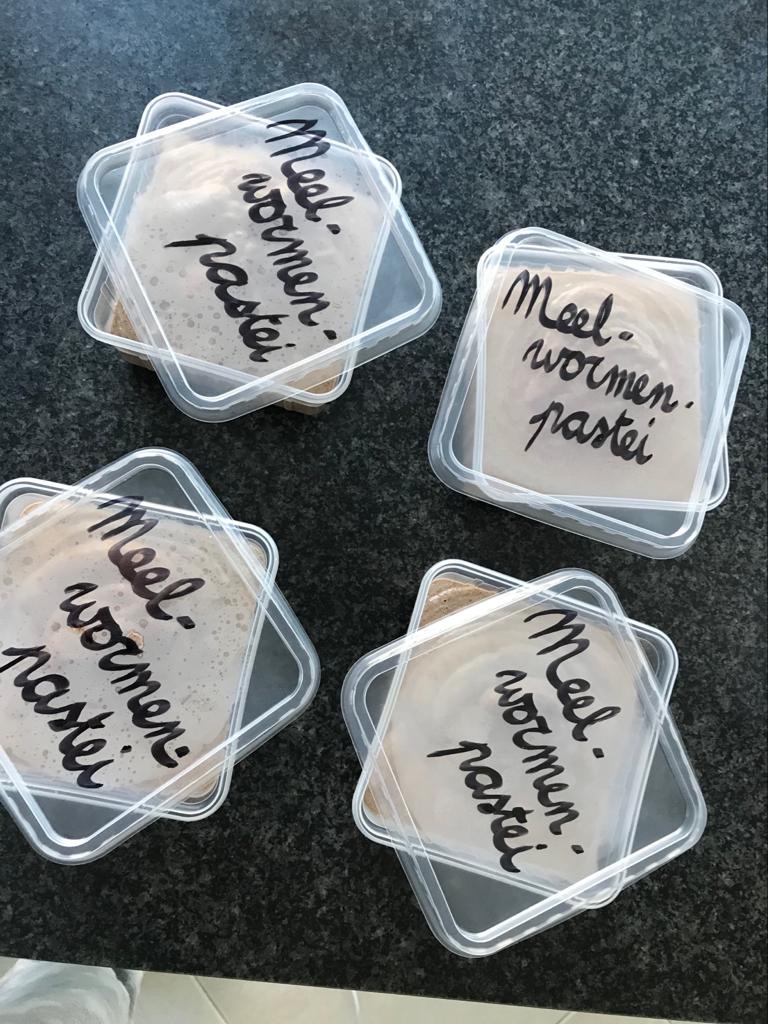 Meel-
wormen-
pastei
Meel-
wormen-
pastei
Meel-
wormen-
pastei
Meel-
wormen-
pastei